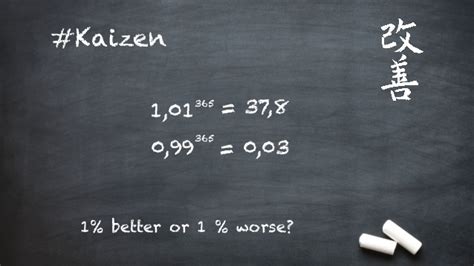 #Kaizen
改善
1,01³⁶⁵ = 37,8
0,99³⁶⁵ = 0,03
1% better or 1 % worse?